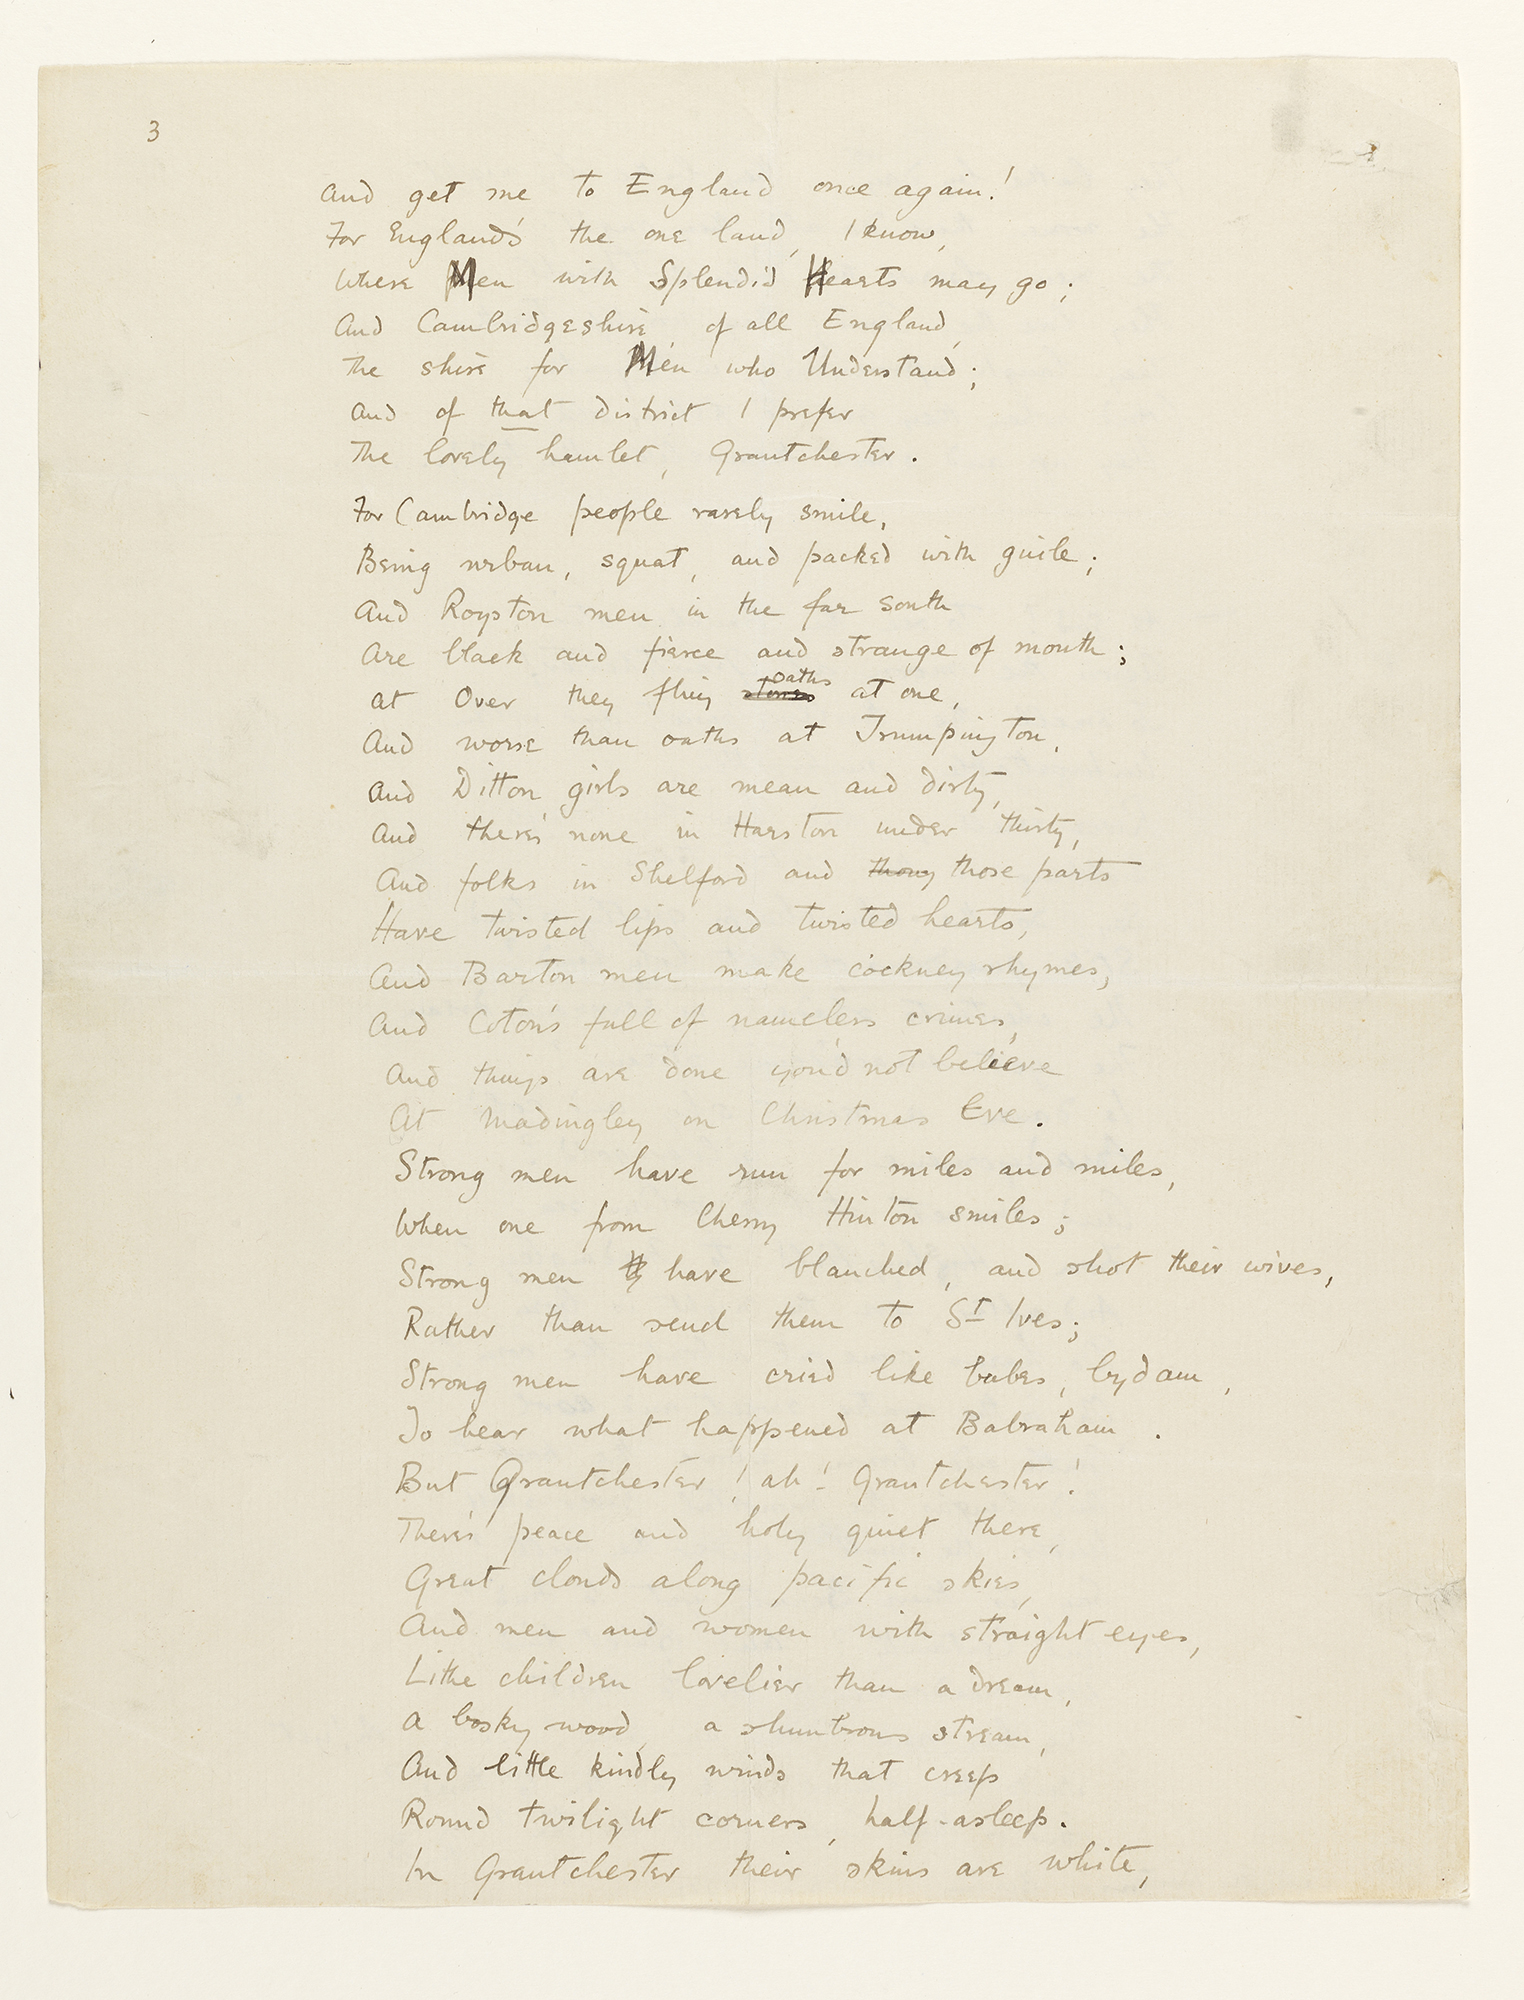 3
And get me to England once again!
For England's the one land, I know,
Where Men with Splendid Hearts may go;
And Cambridgeshire, of all England,
The shire for Men who Understand;
And of that district I prefer
The lovely hamlet, Grantchester.
For Cambridge people rarely smile,
Being urban, squat, and packed with guile;
And Royston men in the far south
Are black and fierce and strange of mouth;
At Over they fling stones oaths at one,
And worse than oaths at Trumpington,
And Ditton girls are mean and dirty,
And there's none in Harston under thirty,
And folks in Shelford and those parts
Have twisted lips and twisted hearts,
And Barton men make cockney rhymes,
And Coton's full of nameless crimes,
And things are done you'd not believe
At Madingley on Christmas Eve.
Strong men have run for miles and miles,
When one from Cherry Hinton smiles;
Strong men have blanched, and shot their wives,
Rather than send them to St Ives;
Strong men have cried like babes, bydam,
To hear what happened at Babraham.
But Grantchester! ah! Grantchester!
There's peace and holy quiet there,
Great clouds along pacific skies,
And men and women with straight eyes,
Lithe children lovelier than a dream,
A bosky wood, a slumbrous stream,
And little kindly winds that creep
Round twilight corners, half-asleep.
In Grantchester their skins are white,